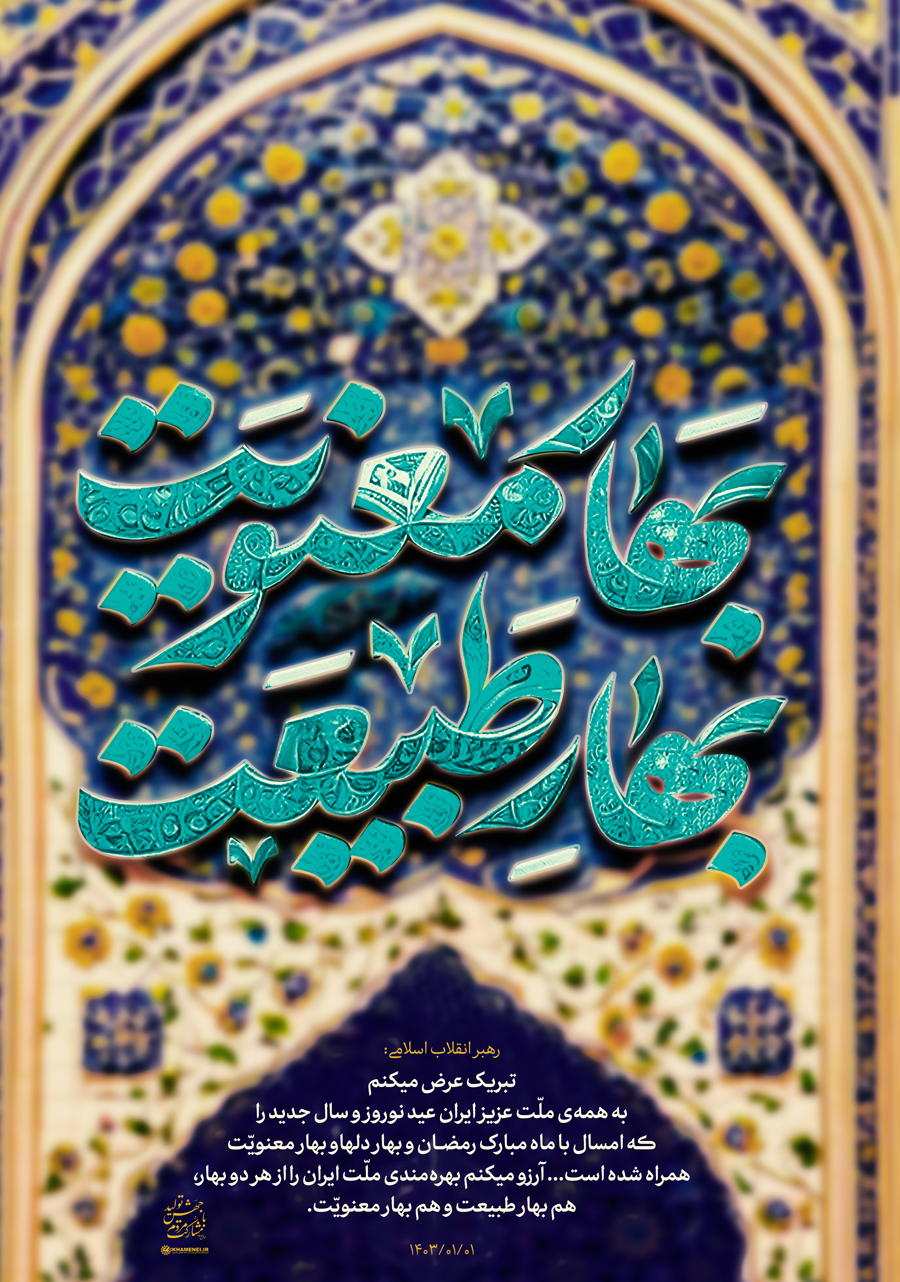 بهار معنویت
بهار طبیعت
رهبر انقلاب اسلامی:
تبریک عرض میکنم
به همه‌ی ملّت عزیز ایران عید نوروز و سال جدید را
که امسال با ماه مبارک رمضان و بهار دلها و بهار معنویّت
همراه شده است... آرزو میکنم بهره‌مندی ملّت ایران را از هر دو بهار،
هم بهار طبیعت و هم بهار معنویّت.
جهش تولید
با مشارکت مردم
KHAMENEI.IR
۱۴۰۳/۰۱/۰۱